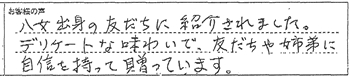 お客様の声
八女出身の友だちに紹介されました。
デリケートな味わいで、友だちや姉弟に
自信を持って贈っています。